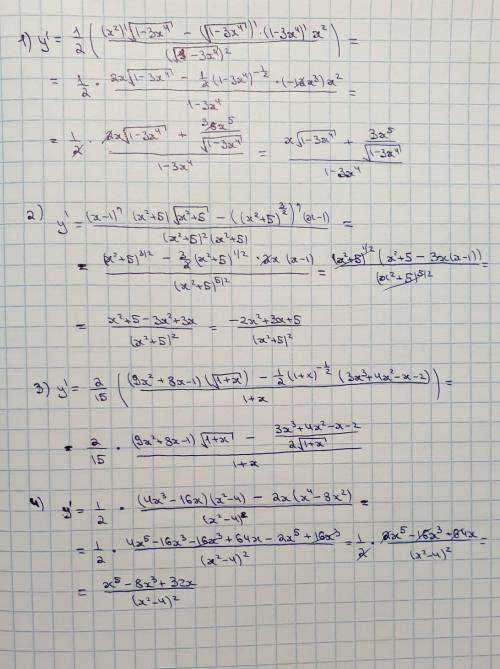 1) y' = 1/2 ( ((x²)'√(1-3x⁴) - (√(1-3x⁴))' · (1-3x⁴)' x²) / (√(1-3x⁴))² ) =
= 1/2 · (2x√(1-3x⁴) - 1/2 (1-3x⁴)^(-1/2) · (-12x³) x²) / (1-3x⁴) =
= 1/2 · (2x√(1-3x⁴) + 6x⁵/√(1-3x⁴)) / (1-3x⁴) = (x√(1-3x⁴) + 3x⁵/√(1-3x⁴)) / (1-3x⁴)
2) y' = ((x-1)' (x²+5) √(x²+5) - ((x²+5)^(3/2))' (x-1)) / ((x²+5)² (x²+5)) =
= ((x²+5)^(3/2) - 3/2 (x²+5)^(1/2) · 2x (x-1)) / (x²+5)^(5/2) = ((x²+5)^(1/2) (x²+5-3x(x-1))) / (x²+5)^(5/2) =
= (x²+5-3x²+3x) / (x²+5)² = (-2x²+3x+5) / (x²+5)²
3) y' = 2/15 ( ((9x²+8x-1)(√(1+x)) - 1/2 (1+x)^(-1/2) (3x³+4x²-x-2)) / (1+x) ) =
= 2/15 · ((9x²+8x-1)√(1+x) - (3x³+4x²-x-2)/(2√(1+x))) / (1+x)
4) y' = 1/2 · ((4x³-16x)(x²-4) - 2x(x⁴-8x²)) / (x²-4)² =
= 1/2 · (4x⁵-16x³-16x³+64x-2x⁵+16x³) / (x²-4)² = 1/2 · (2x⁵-16x³+64x) / (x²-4)² =
= (x⁵-8x³+32x) / (x²-4)²